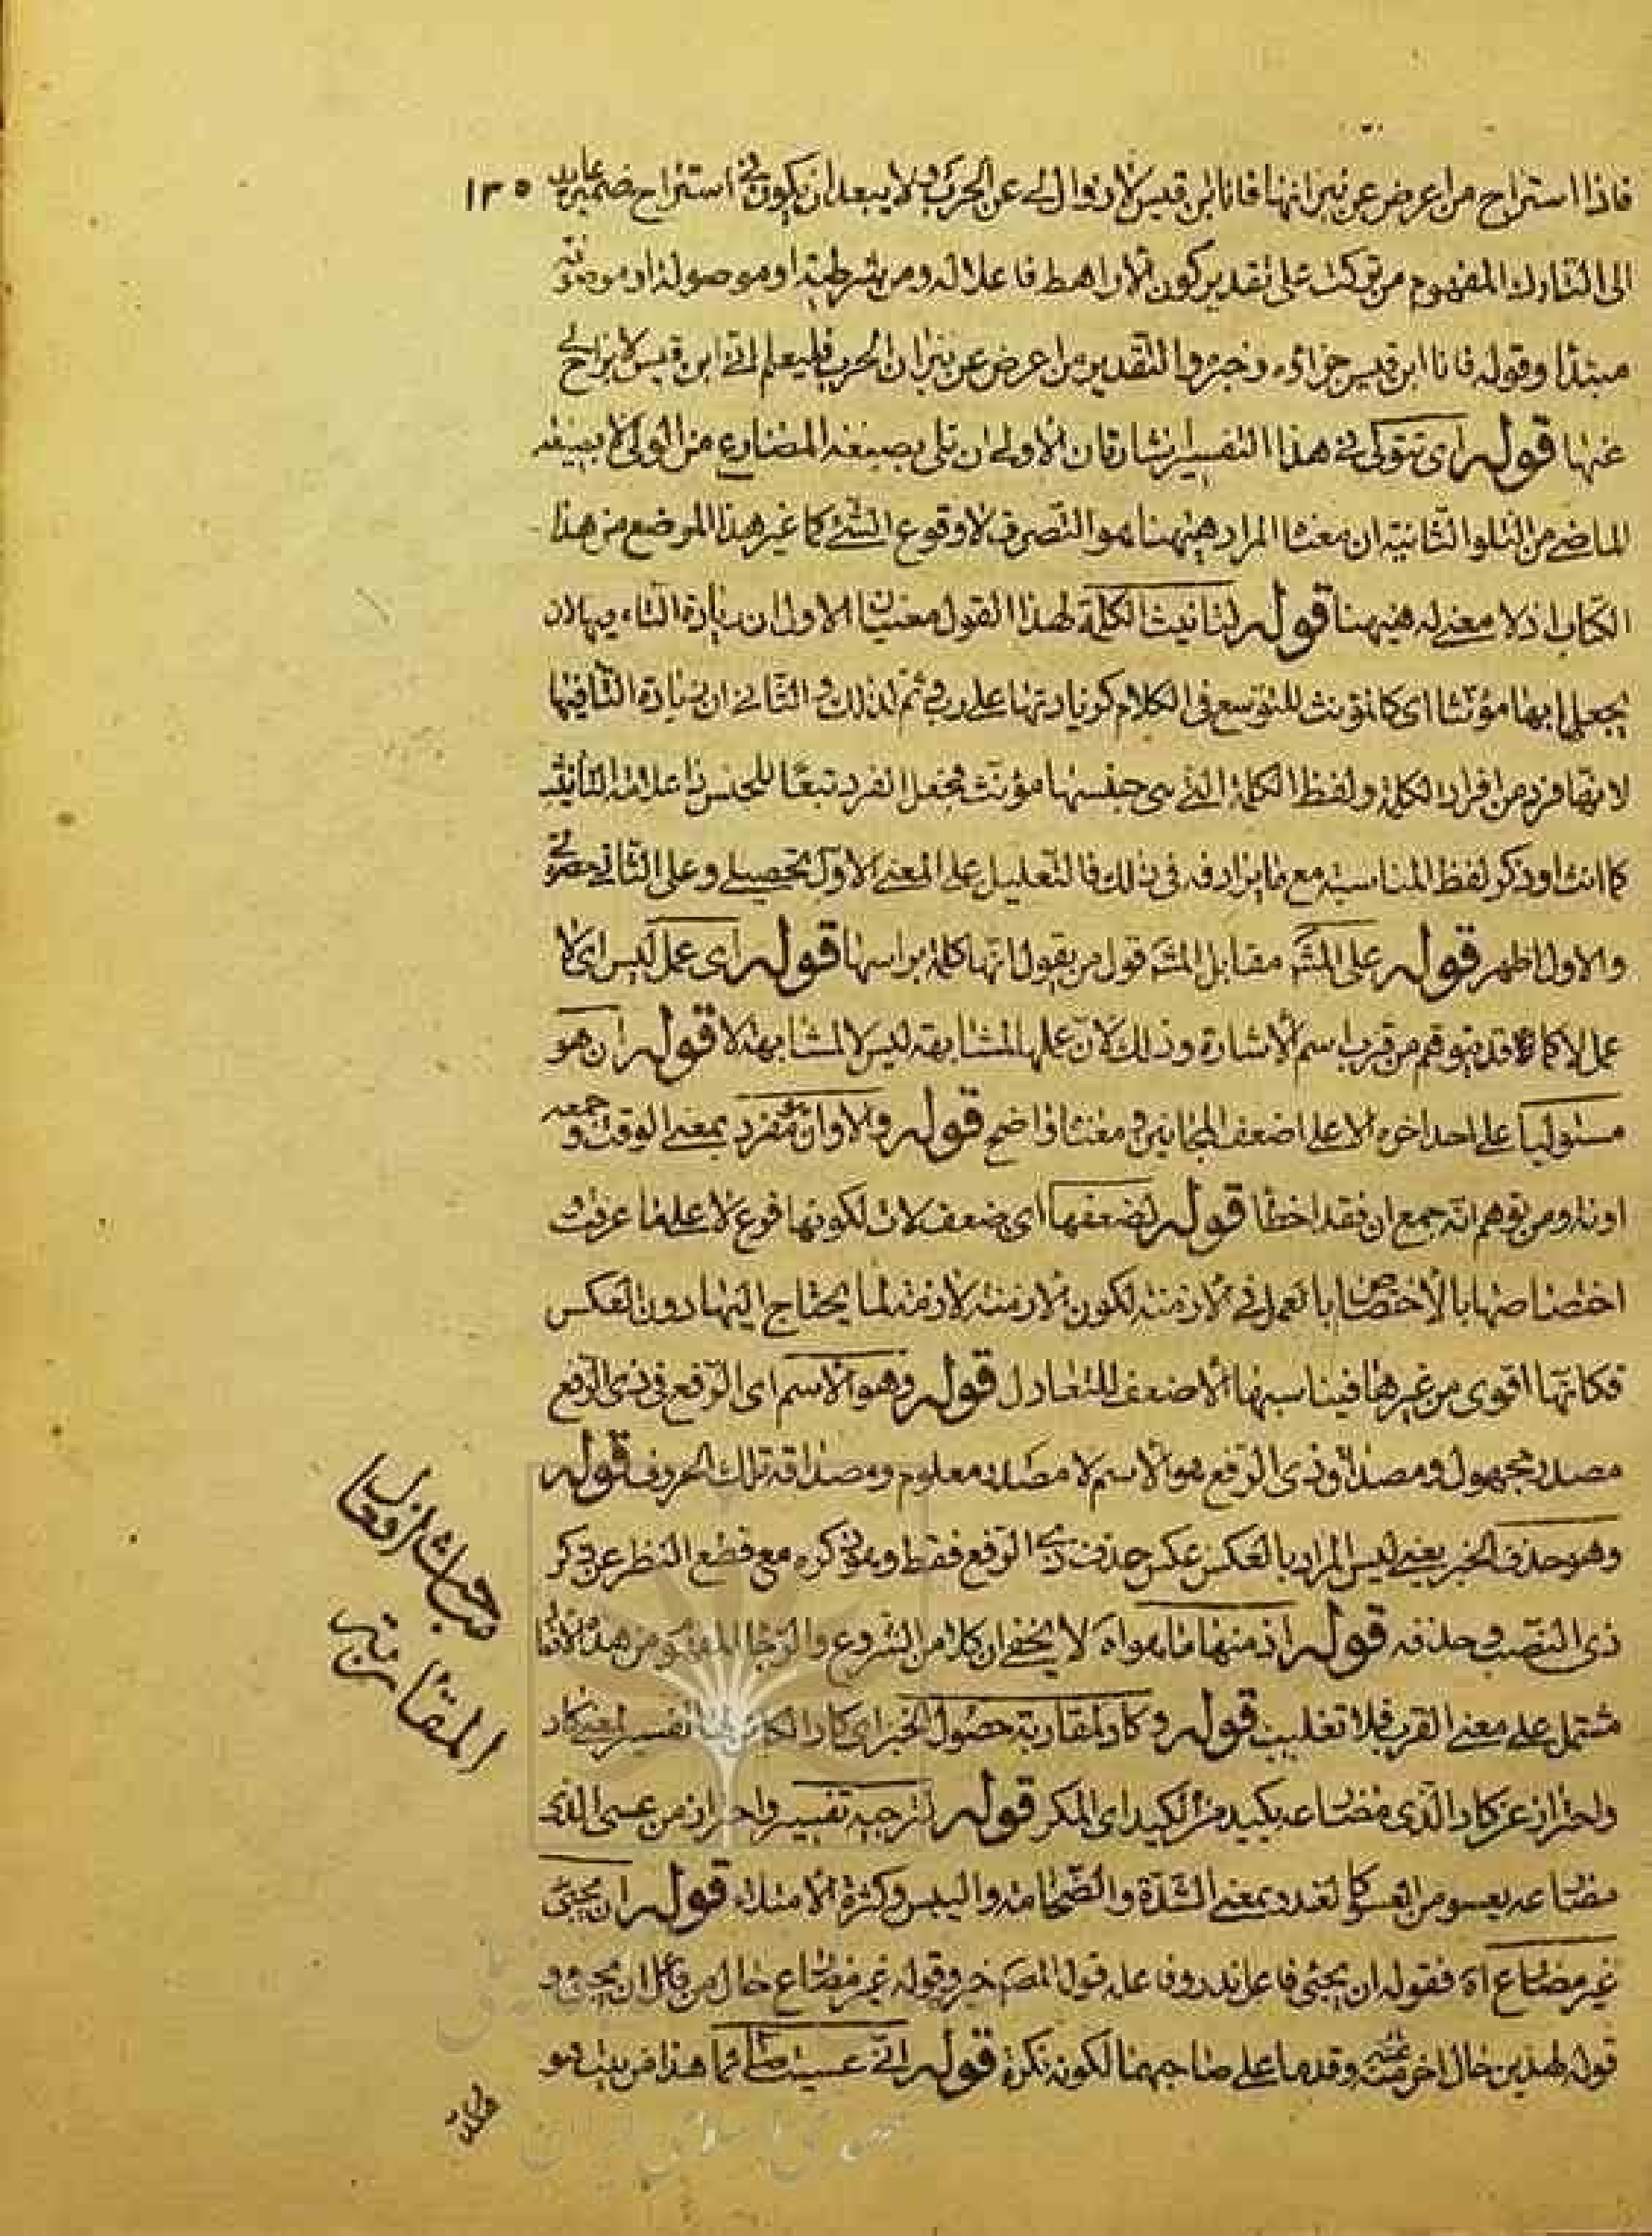 فاذا استراح من اعرض عن نيرانها فانا ابن قيس لا زوال لى عن الحرب ولا يبعد ان يكون فى استراح ضمير عايد ١٣٥
الى التارك المفهوم من تركت على تقدير كون الاراهط فاعلا له ومن شرطية او موصولة او موصوفة
مبتدأ وقوله فانا ابن قيس جزاؤه وخبره والتقدير من اعرض عن نيران الحرب فليعلم انى ابن قيس لا براح لى
عنها قوله اى تتولى فى هذا التفسير اشارتان الاولى ان تلى بصيغة المضارع من الولى لا بصيغة
الماضى من التلو الثانية ان معنا المراد هيهنا هو التصرف لا وقوع الشئ كما غير هذا الموضع من هذا
الكتاب اذ لا معنى له هيهنا قوله لتانيث الكلمة لهذا القول معنيان الاول ان زيادة التاء فيها لان
يجعل بها مؤنثا اى كانثونث للتوسع فى الكلام كزيادتها على رب وثم لذلك والثانى ان زيادة التا فيها
لانها فرد من افراد الكلمة ولفظ الكلمة التى هى جنسها مؤنث فجعل الفرد تبعا للجنس ذا علامة التانيث
كما انث او ذكر لفظ المناسبة مع ما يرادفه فى ذلك فالتعليل على المعنى الاول تحصيلى وعلى الثانى حصولى
والاول اظهر قوله على المشهـ مقابل المشهـ قول من يقول انها كلمة براسها قوله اى عمل ليس اى لا
عمل لا كما قد يتوهم من قرب اسم الاشارة وذلك لان عملها لمشابهة ليس لا لمشابهة لا قوله ان هو
مستوليا على احد اخره الا على اضعف المجانين ومعناه واضح قوله ولا اوان مفرد بمعنى الوقت وجمعه
اونة ومن توهم انه جمع ان فقد اخطأ قوله لضعفها اى ضعف لات لكونها فرع لا على ما عرفت
اختصاصها بالاختصاص بالعمل فى الازمنة لكون الازمنة لازمة لما يحتاج اليها دون العكس
فكانها اقوى من غيرها فيناسبها الاضعف للتعادل قوله وهو الاسم اى الرفع فى ذى الرفع
مصدر مجهول ومصداق ذى الرفع هو الاسم لا مصدر معلوم ومصداقه تلك الحروف قوله
وهو حذف الخبر يعنى ليس المراد بالعكس عكس حذف ذى الرفع فقط وهو ذكره مع قطع النظر عن ذكر
ذى النصب وحذفه قوله اذ منها ما هو اه لا يخفى ان كلا من الشروع والرجا المفهوم من هذه الافعال
مشتمل على معنى القرب فلا تغليب قوله وكاد لمقاربة حصول الخبر اى كاد تفسير لمعنى كاد
واحتراز عن كاد الذى مضارعه يكيد من الكيد اى المكر قوله لترجيه تفسير واحتراز من عسى الذى
مضارعه يعسو من العسو كالغدو بمعنى الشدة والضخامة واليبس وكثرة الامتداد قوله ان يجئ
غير مضارع اه فقوله ان يجئ فاعل ندر وفاعله قول المصـ خبر وقوله غير مضارع حال من فاعل ان يجئ و
قوله لهذين حال اخر منه وقدما على صاحبهما لكونه نكرة قوله انى عسيت صائما هذا ضرب وهو
مبحث افعال
المقاربة